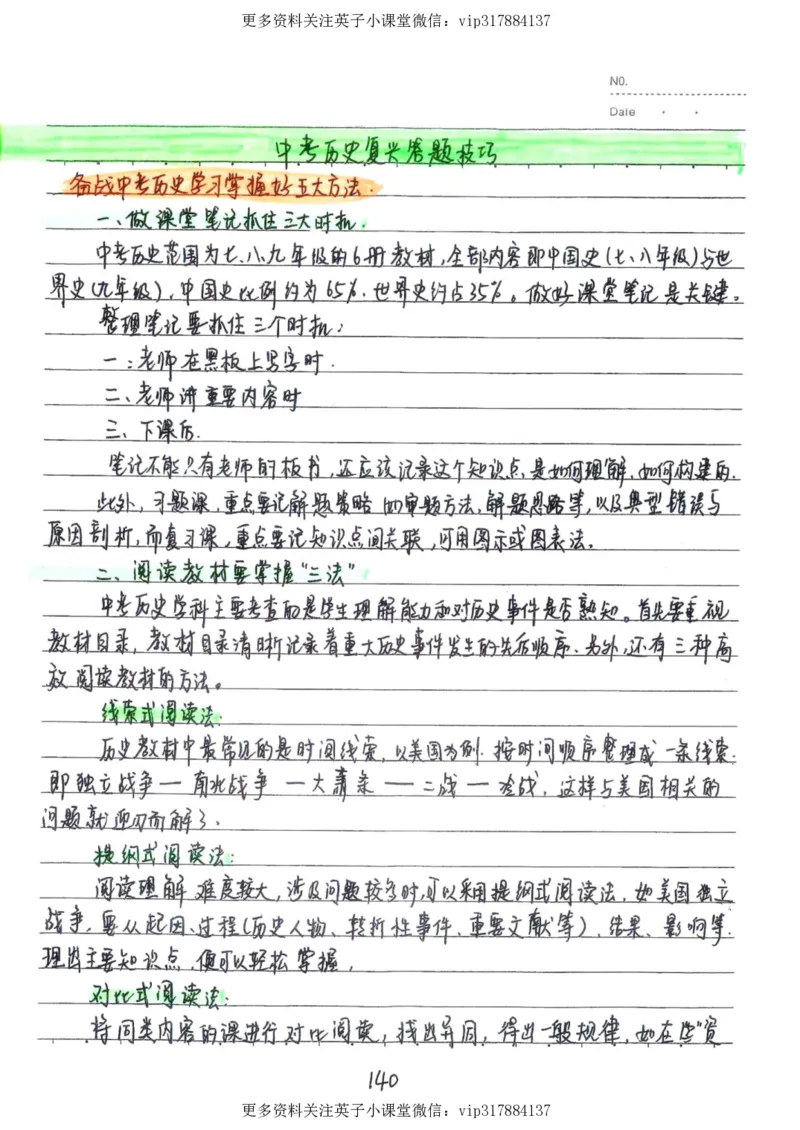 更多资料关注英子小课堂微信：vip317884137
NO.
Date
中考历史复兴答题技巧
备战中考历史学习掌握好五大方法.
一、做课堂笔记抓住三大时机.
中考历史范围为七、八、九年级的6册教材,全部内容即中国史(七、八年级)与世
界史(九年级),中国史比例约为65%.世界史约占35%。做好课堂笔记是关键。
整理笔记要抓住三个时机:
一:老师在黑板上写字时.
二、老师讲重要内容时
三、下课后.
笔记不能只有老师的板书,还应该记录这个知识点是如何理解,如何构建的.
此外,习题课,重点要记解题策略如审题方法,解题思路等,以及典型错误与
原因剖析,而复习课,重点要记知识点间关联,可用图示或图表法。
二、阅读教材要掌握“三法”
中考历史学科主要考查的是学生理解能力和对历史事件是否熟知。首先要重视
教材目录,教材目录清晰记录着重大历史事件发生的先后顺序.另外,还有三种高
效阅读教材的方法。
线索式阅读法:
历史教材中最常见的是时间线索,以美国为例.按时间顺序整理成一条线索.
即独立战争—南北战争—大萧条—二战—冷战,这样与美国相关的
问题就迎刃而解了.
提纲式阅读法:
阅读理解难度较大,涉及问题较多时,可以采用提纲式阅读法,如美国独立
战争,要从起因、过程(历史人物、转折性事件、重要文献等)、结果、影响等.
理出主要知识点,便可以轻松掌握,
对比式阅读法:
将同类内容的课进行对比阅读,找出异同,得出一般规律,如在些“资
140
更多资料关注英子小课堂微信：vip317884137